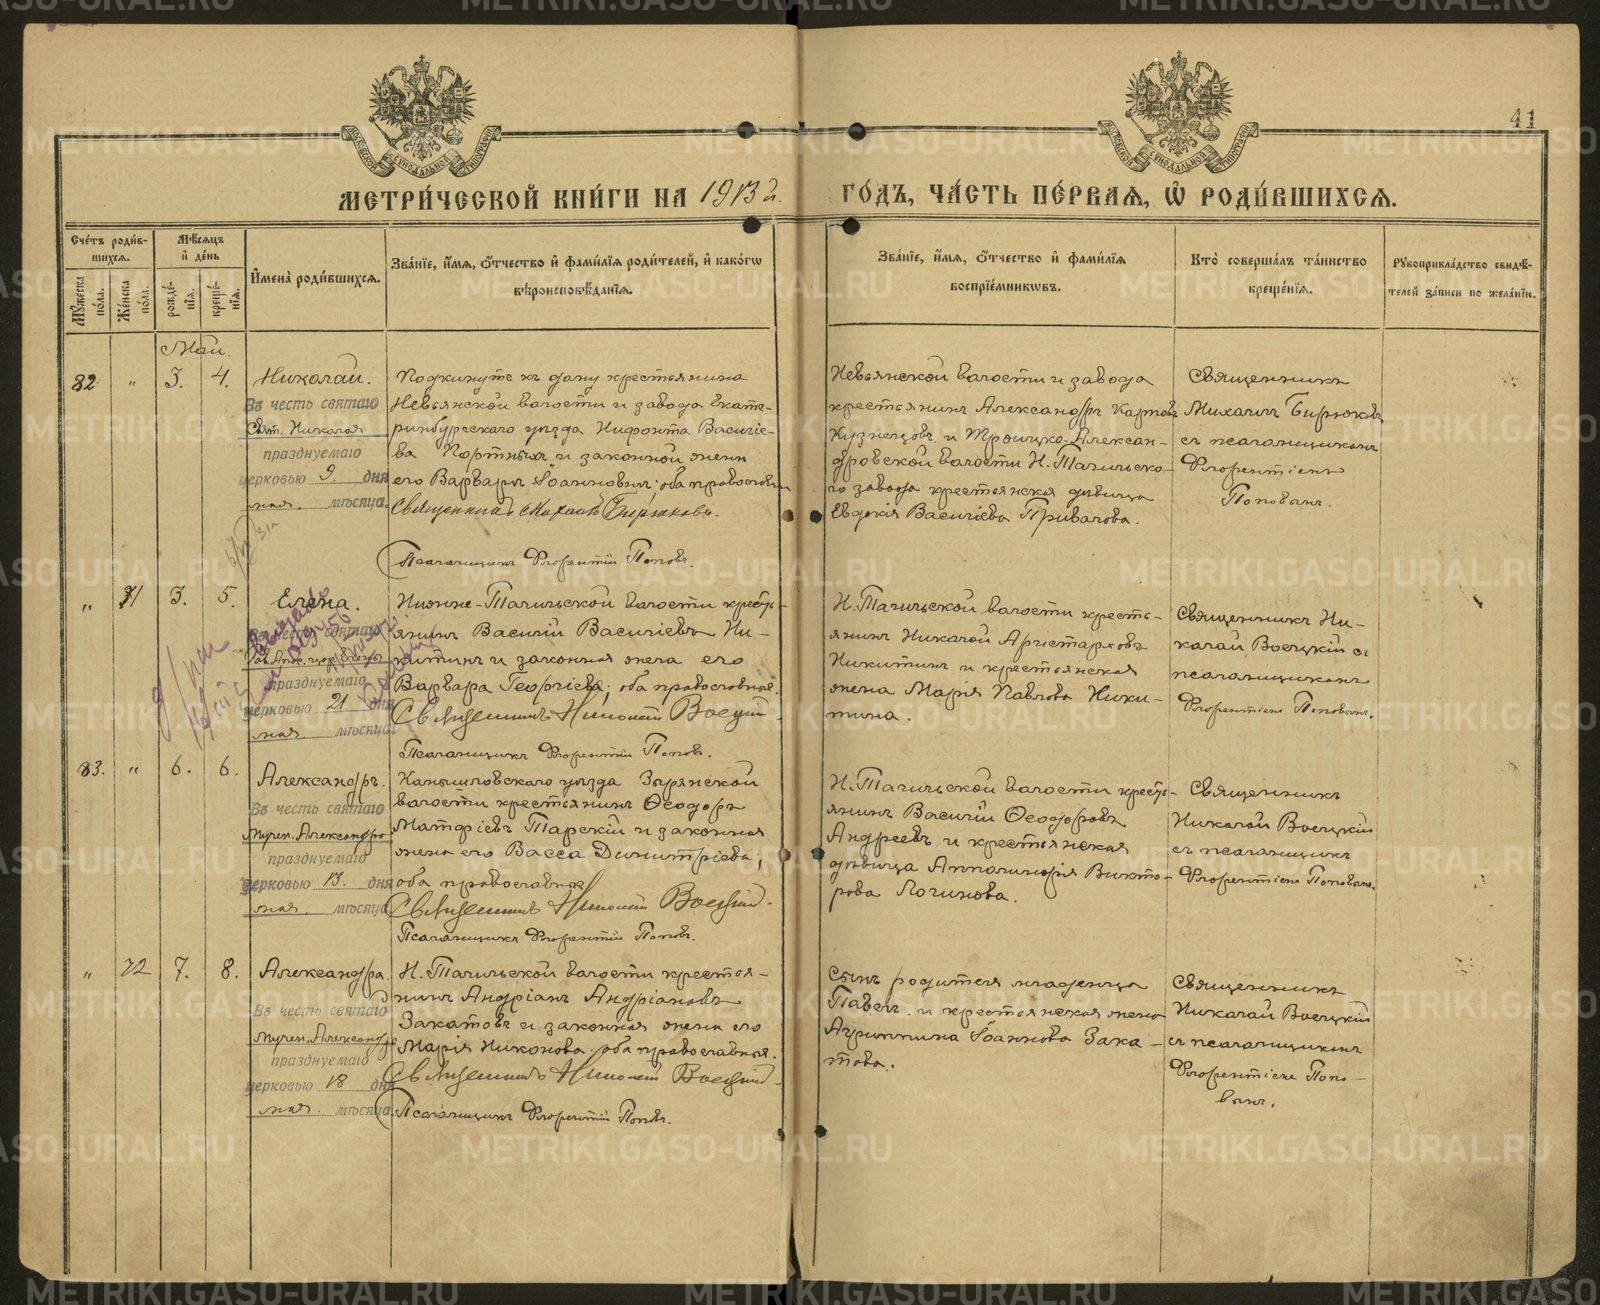 41
МЕТРИ́ЧЕСКОЙ КНИ́ГИ НА 1913 г. ГО́ДЪ, ЧА́СТЬ ПЕ́РВАЯ, Ѡ҆ РОДИ́ВШИХСЯ.
Сче́тъ роди́в-
шихся.
Му́жеска по́ла.
Же́нска по́ла.
Мѣ́сяцъ и҆ де́нь
рожде́-
нїя.
креще́-
нїя.
И҆мена̀ роди́вшихся.
Зва́нїе, и҆́мя, ѻ҆́тчество и҆ фами́лїя роди́телей, и҆ како́гѡ
вѣроисповѣ́данїя.
Зва́нїе, и҆́мя, ѻ҆́тчество и҆ фами́лїя
воспрїе́мникѡвъ.
Кто̀ соверша́лъ та́инство
креще́нїя.
Рукоприкла́дство свидѣ́-
телей за́писи по жела́нїю.
Май.
82
"
3.
4.
Николай.
Въ честь святаго
Свят. Николая
празднуемаго
церковью 9. дня
мая. мѣсяца.
Подкинутъ къ дому крестьянина
Невьянской волости и завода Екате-
ринбургскаго уѣзда Нифонта Василіе-
ва Портныхъ и законной жены
его Варвары Іоанновны; оба православн
Священникъ Михаилъ Бирюковъ.
Псаломщикъ Флорентій Поповъ.
Невьянской волости и завода
крестьянинъ Александръ Карповъ
Кузнецовъ и Троицко-Алексан-
дровской волости Н. Тагильска-
го завода крестьянская дѣвица
Евдокія Василіева Привалова.
Священникъ
Михаилъ Бирюковъ
съ псаломщикомъ
Флорентіемъ
Поповымъ.
"
71
3.
5.
Елена.
Въ честь святаго
Рав. Апос. цар. Елены
празднуемаго
церковью 21 дня
мая. мѣсяца.
Нижне-Тагильской волости кресть-
янинъ Василій Василіевъ Ни-
китинъ и законная жена его
Варвара Георгіева; оба православные.
Священникъ Николай Воецкій.
Псаломщикъ Флорентій Поповъ.
Н. Тагильской волости кресть-
янинъ Николай Аристарховъ
Никитинъ и крестьянская
жена Марія Павлова Ники-
тина.
Священникъ Ни-
колай Воецкій съ
псаломщикомъ
Флорентіемъ Поповымъ.
83.
"
6.
6.
Александръ.
Въ честь святаго
Мучен. Александра
празднуемаго
церковью 13. дня
мая. мѣсяца
Камышловскаго уѣзда Зырянской
волости крестьянинъ Ѳеодоръ
Матфіевъ Тарскій и законная
жена его Васса Димитріева;
оба православные
Священникъ Николай Воецкій.
Псаломщикъ Флорентій Поповъ.
Н. Тагильской волости кресть-
янинъ Василій Ѳеодоровъ
Андреевъ и крестьянская
дѣвица Апполинарія Викто-
рова Логинова.
Священникъ
Николай Воецкій
съ псаломщикомъ
Флорентіемъ Поповымъ.
"
72
7.
8.
Александра.
Въ честь святаго
Мучен. Александры
празднуемаго
церковью 18 дня
мая. мѣсяца.
Н. Тагильской волости крестья-
нинъ Андріанъ Андріановъ
Закатовъ и законная жена его
Марія Никонова оба православные.
Священникъ Николай Воецкій.
Псаломщикъ Флорентій Поповъ.
Сынъ родителя младенца
Павелъ и крестьянская жена
Агриппина Іоаннова Зака-
това.
Священникъ
Николай Воецкій
съ псаломщикомъ
Флорентіемъ Попо-
вымъ.
METRIKI.GASO-URAL.RU